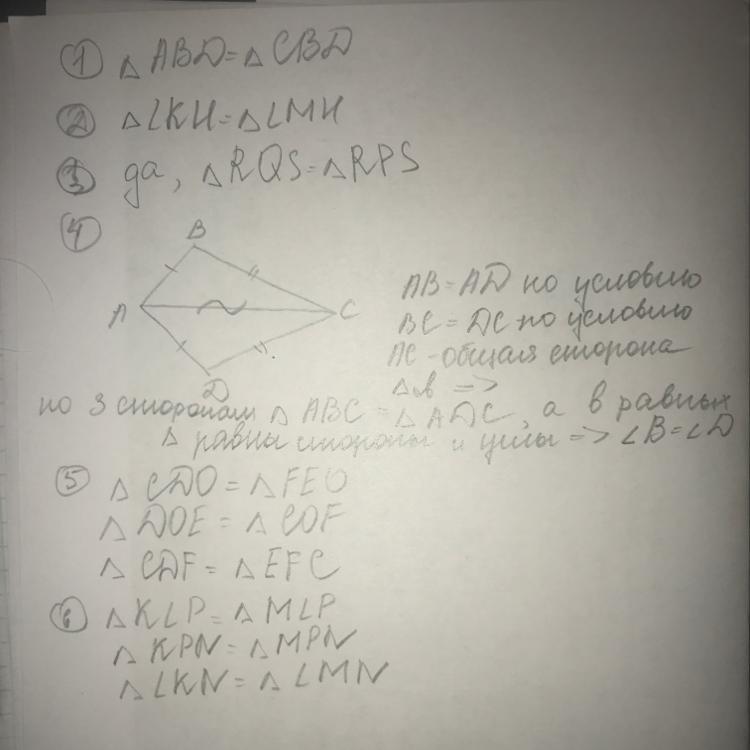 1 △ ABD = △ CBD
2 △ LKH = △ LMH
3 да, △ RQS = △ RPS
4
B
A
C
D
AB = AD по условию
BC = DC по условию
AC - общая сторона
△в =>
по 3 сторонам △ ABC = △ ADC, а в равных
△ равны стороны и углы => ∠B = ∠D
5 △ CDO = △ FEO
△ DOE = △ COF
△ CDF = △ EFC
6 △ KLP = △ MLP
△ KPN = △ MPN
△ LKN = △ LMN